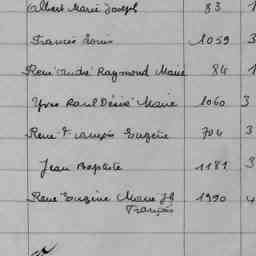 Albert Marie Joseph 83 1
Francis Louis 1059 3
René André Raymond Marie 84 1
Yves Paul Désiré Marie 1060 3
René François Eugène 704 3
Jean Baptiste 1181 3
René Eugène Marie Jh 1990 4
François